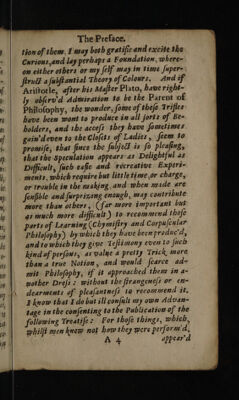 The Preface.
tion of them. I may both gratifie and excite the
Curious, and lay perhaps a Foundation, where-
on either others or my self may in time super-
struct a substantial Theory of Colours. And if
Aristotle, after his Master Plato, have right-
ly observ'd Admiration to be the Parent of
Philosophy, the wonder, some of these Trifles
have been wont to produce in all sorts of Be-
holders, and the access they have sometimes
gain'd even to the Closets of Ladies, seem to
promise, that since the subject is so pleasing,
that the Speculation appears as Delightful as
Difficult, such easie and recreative Experi-
ments, which require but little time, or charge,
or trouble in the making, and when made are
sensible and surprizing enough, may contribute
more than others, (far more important but
as much more difficult) to recommend those
parts of Learning (Chymistry and Corpuscular
Philosophy) by which they have been produc'd,
and to which they give Testimony even to such
kind of persons, as value a pretty Trick more
than a true Notion, and would scarce ad-
mit Philosophy, if it approach'd them in a-
nother Dress: without the strangeness or en-
dearments of pleasantness to recommend it.
I know that I do but ill consult my own Advan-
tage in the consenting to the Publication of the
following Treatise: For those things, which,
whilst men knew not how they were perform'd,
A 4 appear'd